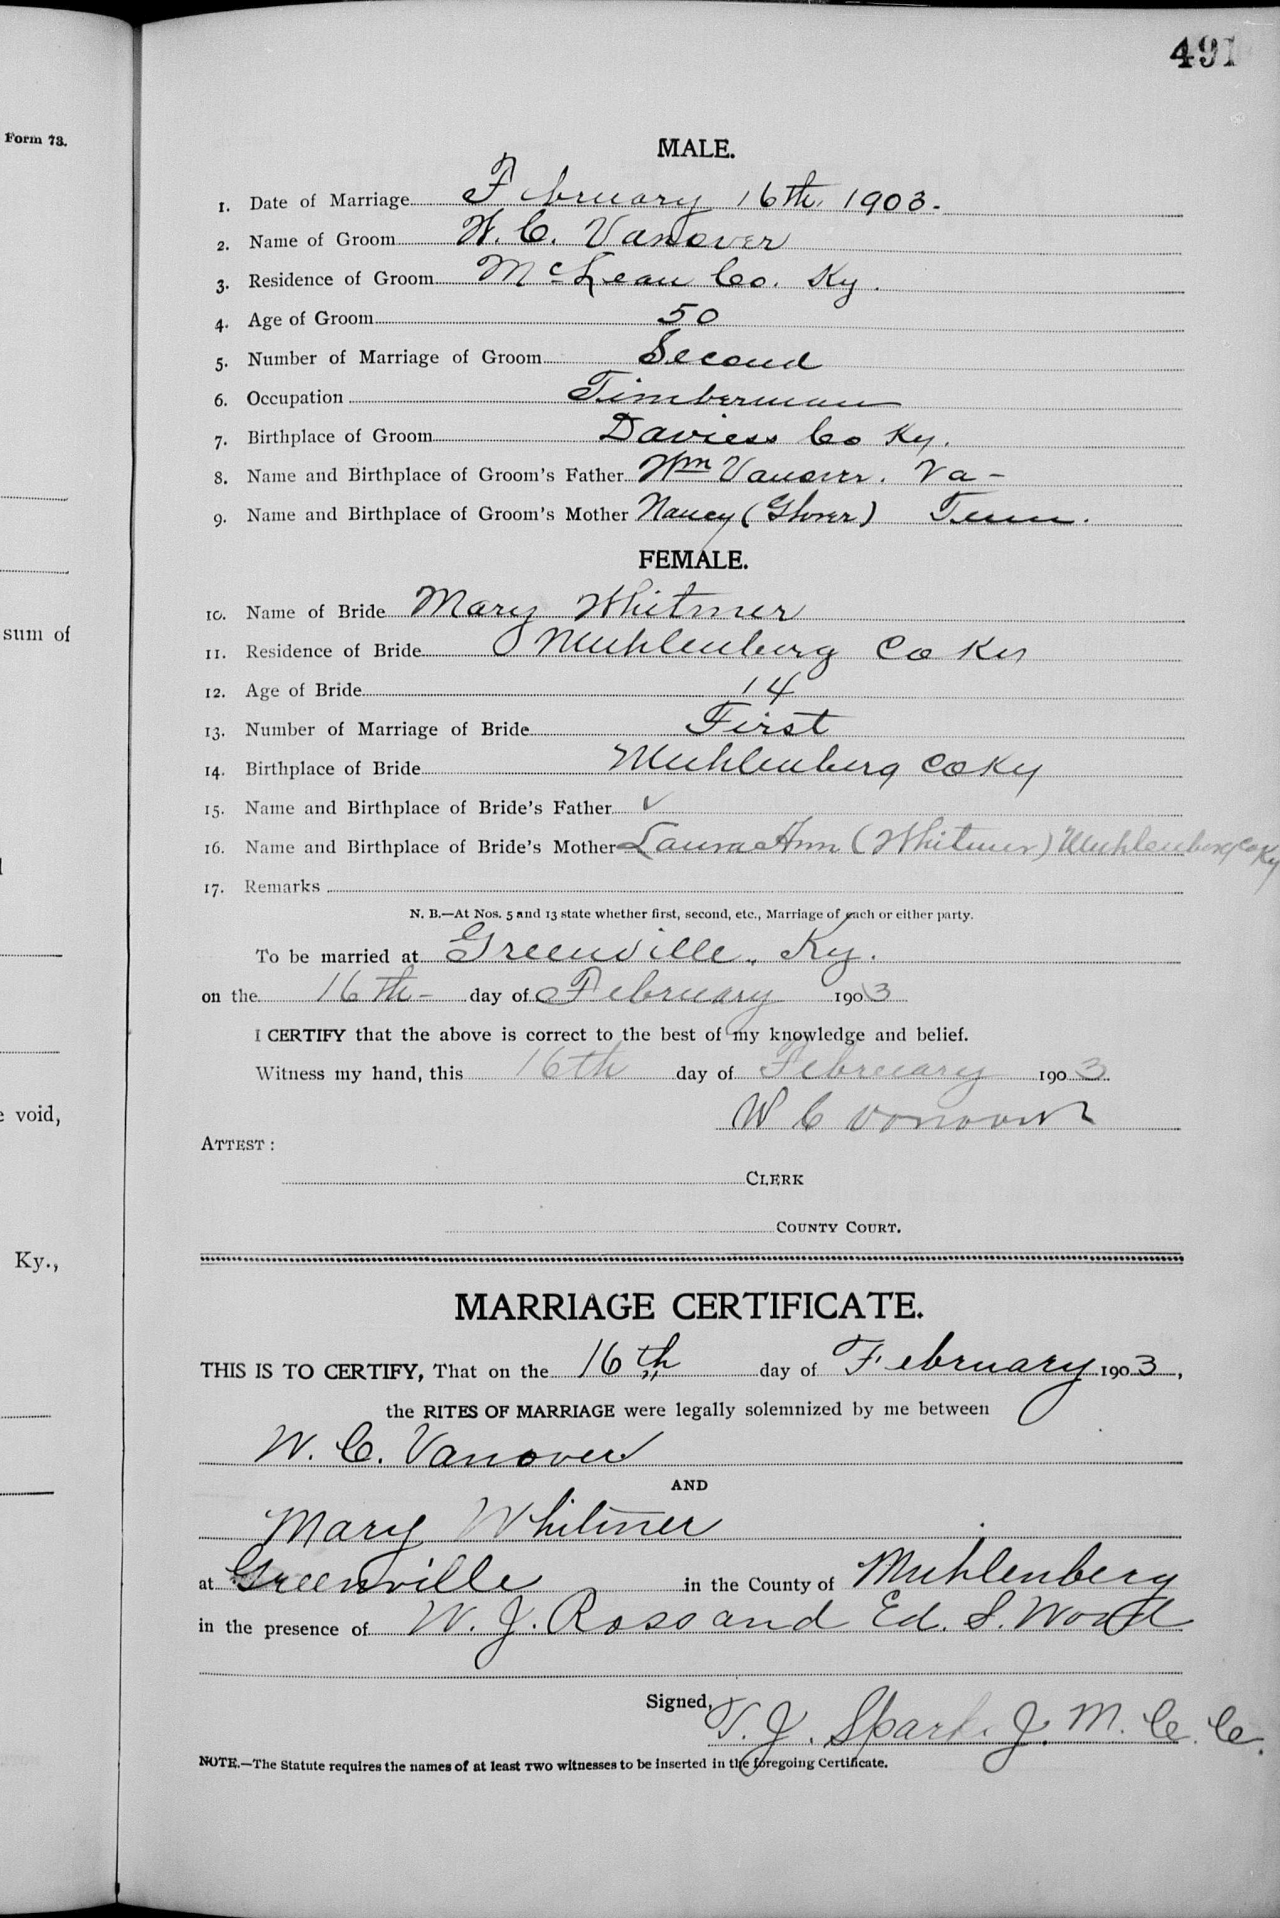 491
Form 73.
MALE.
1. Date of Marriage February 16th, 1903.
2. Name of Groom W. C. Vanover
3. Residence of Groom McLean Co. Ky.
4. Age of Groom 50
5. Number of Marriage of Groom Second
6. Occupation Timberman
7. Birthplace of Groom Daviess Co Ky.
8. Name and Birthplace of Groom's Father Wm Vanover. Va-
9. Name and Birthplace of Groom's Mother Nancy (Glover) Tenn.
FEMALE.
10. Name of Bride Mary Whitmer
11. Residence of Bride Muhlenberg Co Ky
sum of
12. Age of Bride 14
13. Number of Marriage of Bride First
14. Birthplace of Bride Muhlenberg Co Ky
15. Name and Birthplace of Bride's Father ✓
16. Name and Birthplace of Bride's Mother Laura Ann (Whitmer) Muhlenberg Co Ky
17. Remarks
N. B.—At Nos. 5 and 13 state whether first, second, etc., Marriage of each or either party.
To be married at Greenville, Ky.
on the 16th- day of February 1903
I CERTIFY that the above is correct to the best of my knowledge and belief.
Witness my hand, this 16th day of February 1903
e void,
W C Vanover
ATTEST:
CLERK
COUNTY COURT.
Ky.,
MARRIAGE CERTIFICATE.
THIS IS TO CERTIFY, That on the 16th day of February 1903,
the RITES OF MARRIAGE were legally solemnized by me between
W. C. Vanover
AND
Mary Whitmer
at Greenville in the County of Muhlenberg
in the presence of W. J. Ross and Ed. S. Wood
Signed, T. J. Sparks J. M. C. C.
NOTE.—The Statute requires the names of at least TWO witnesses to be inserted in the foregoing Certificate.